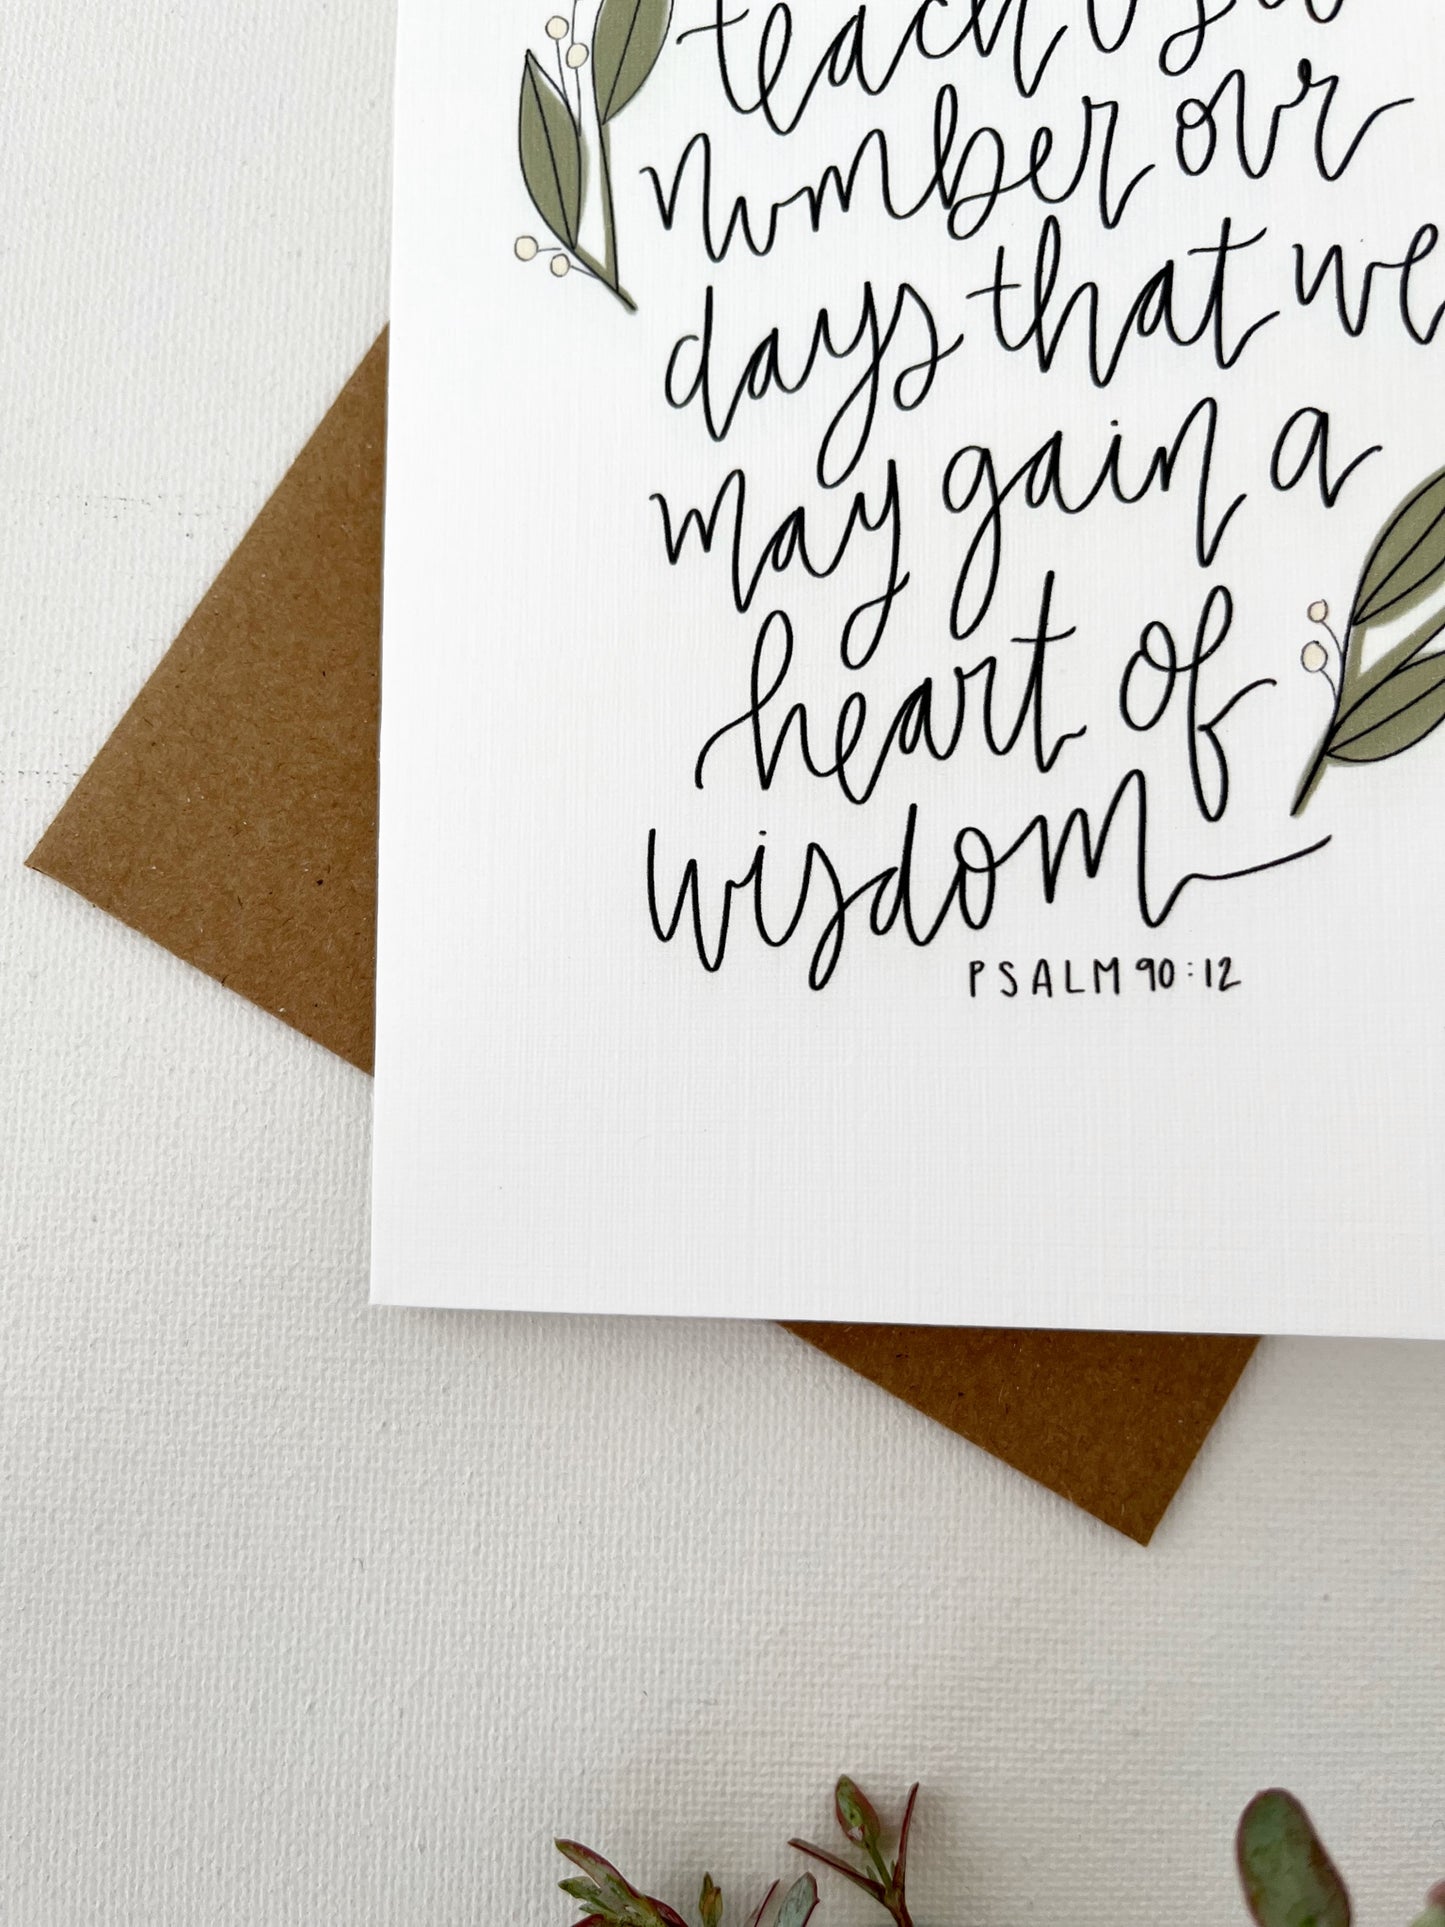 teach us to
number our
days that we
may gain a
heart of
wisdom
PSALM 90:12